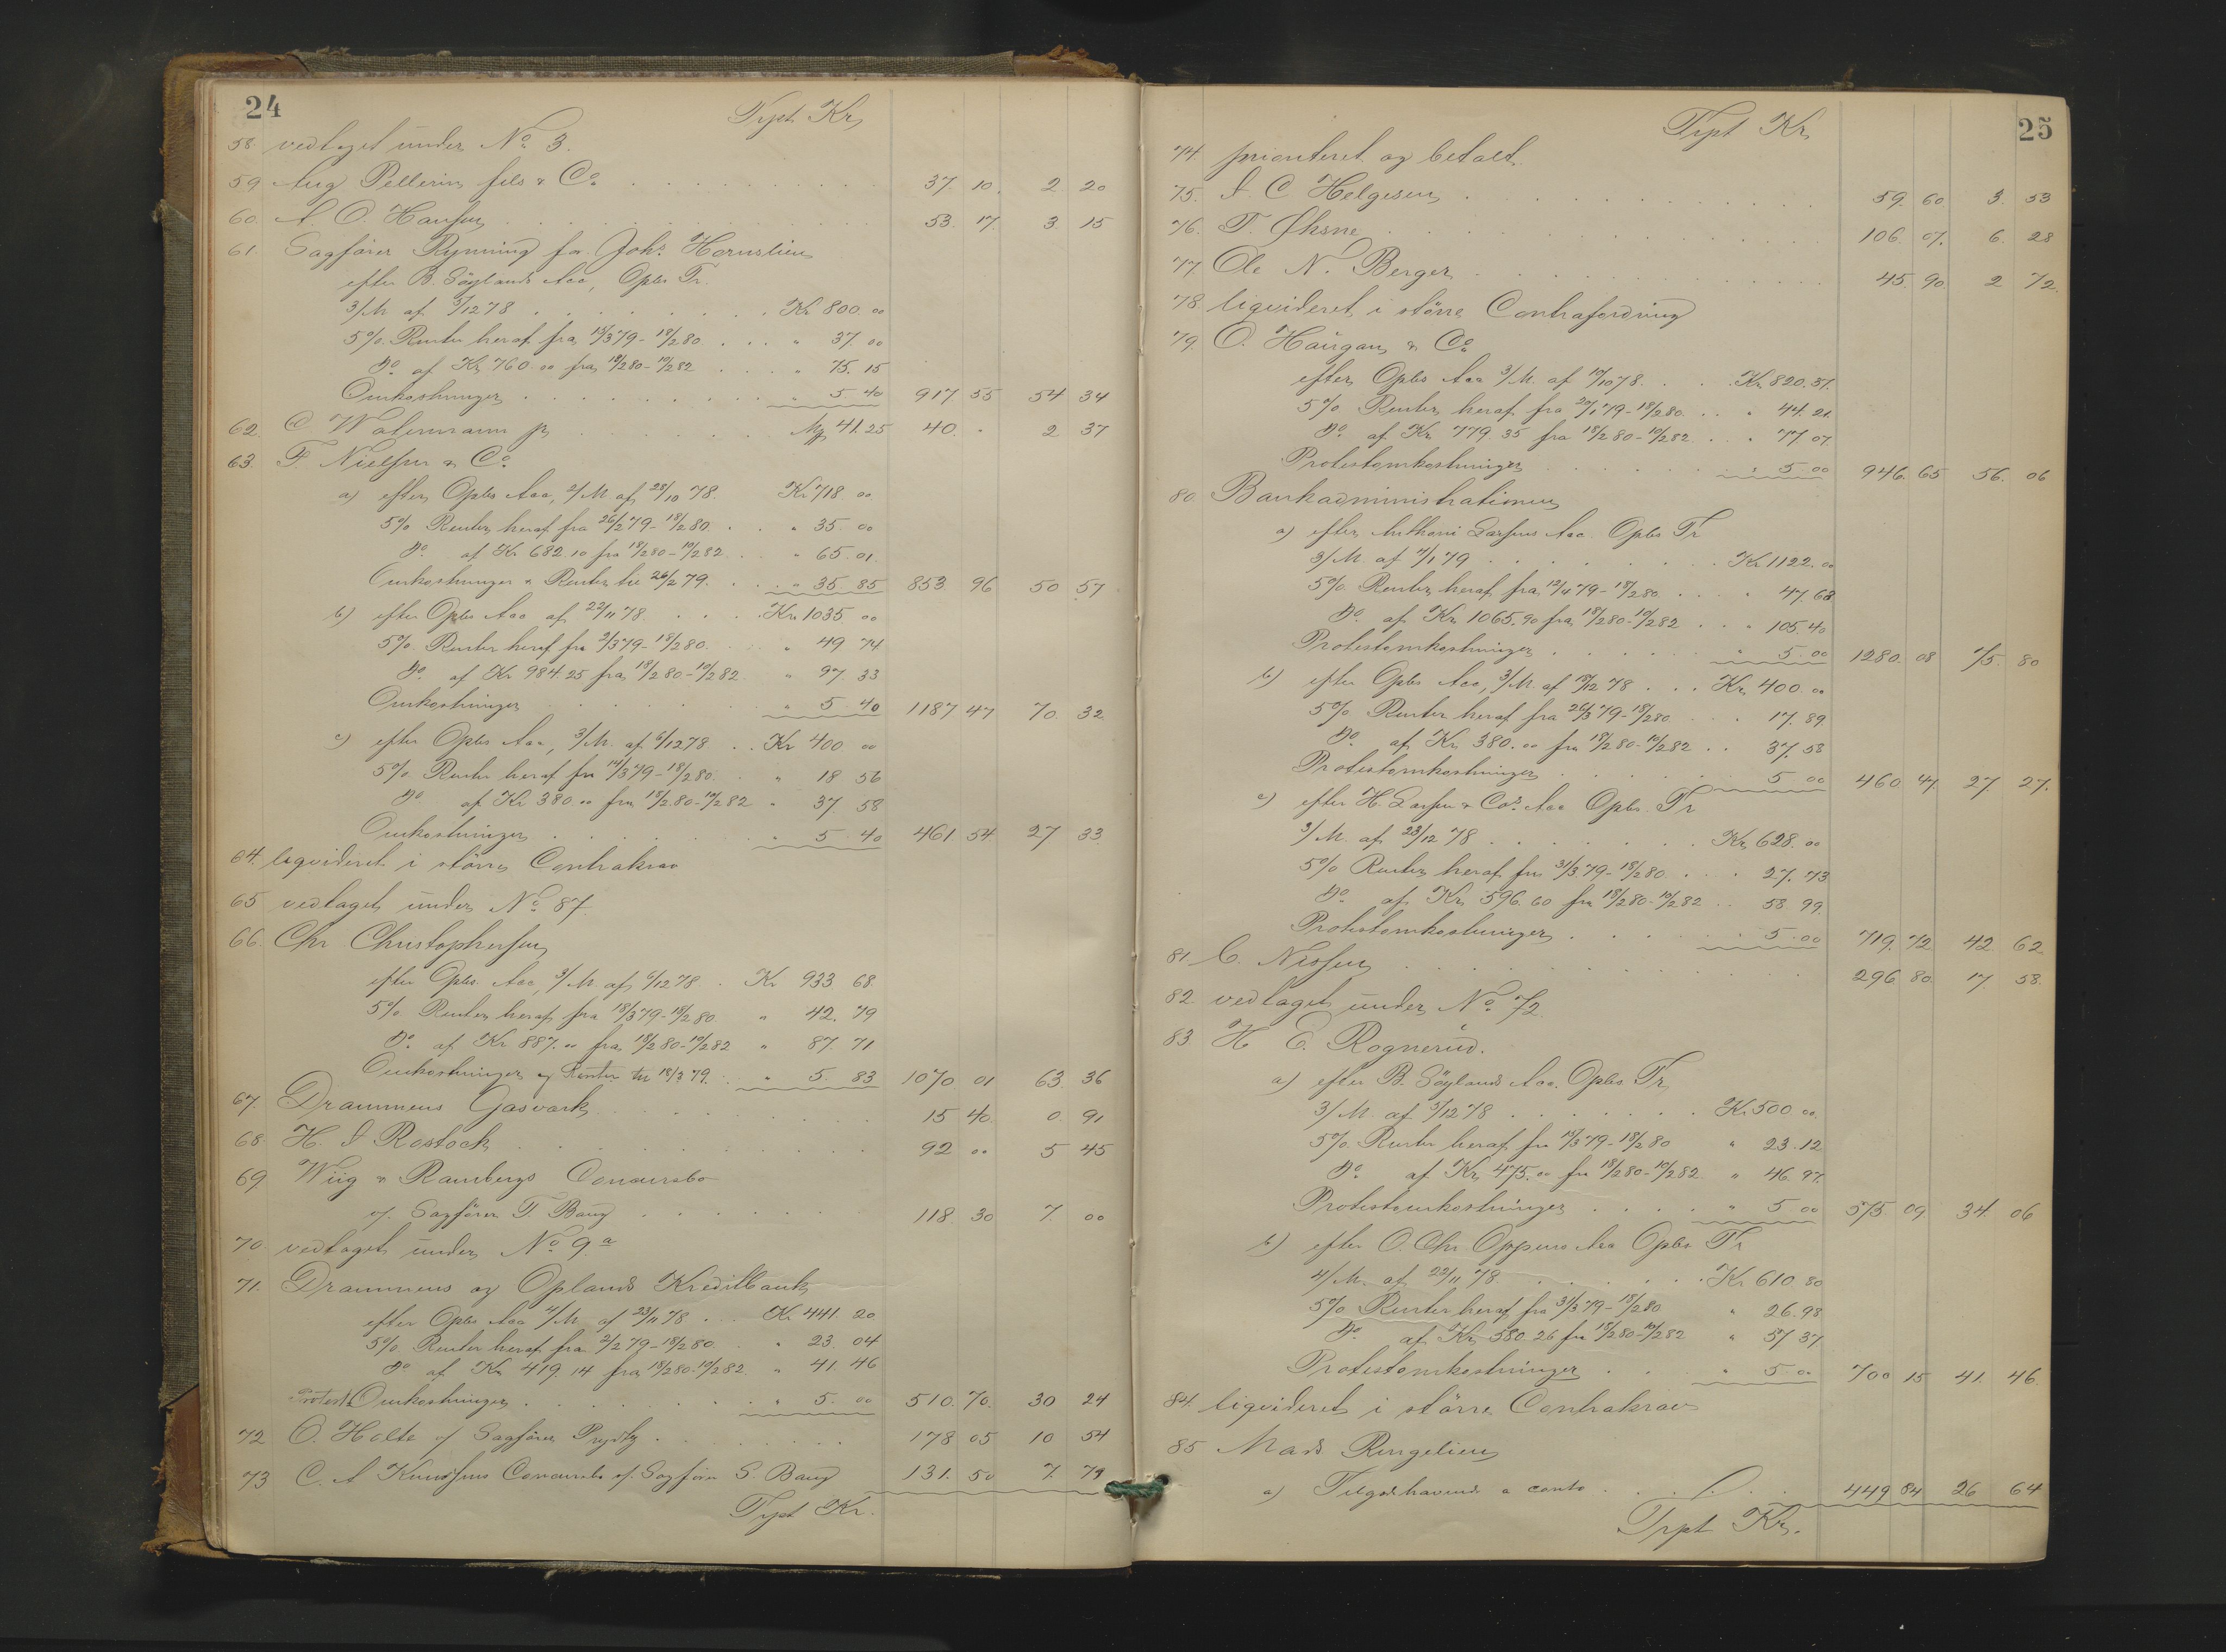 24
Trpt Kr
58. vedtaget under No 3.
59 Aug Pellerin fils & Co. 37. 10. 2 20
60. A. O. Hansen 53. 17. 3. 15
61. Sagfører Rynning for Johs Hornslien
efter B. Søylands Acc, Opbs Tr.
3/M af 5/12 78 Kr 800. 00
5% Renter heraf fra 15/3 79 - 18/2 80 " 37. 00
Do af Kr 760. 00 fra 18/2 80 - 10/2 82 " 75. 15
Omkostninger " 5 40 917. 55 54 34
62. C. Walermann jr Mz 41.25 40. - 2 37
63. F. Nielsen & Co
a) efter Opbs Acc, 2/M af 28/10 78. Kr 718. 00
5% Renter heraf fra 26/2 79 - 18/2 80 " 35. 00
Do af Kr 682.10 fra 18/2 80 - 10/2 82 " 65. 01
Omkostninger & Renter til 26/2 79. " 35 85 853. 96 50 57
b) efter Opbs Acc af 22/11 78. Kr 1035. 00
5% Renter heraf fra 2/3 79 - 18/2 80. " 49 74
Do af Kr 984.25 fra 18/2 80 - 10/2 82 " 97. 33
Omkostninger " 5. 40 1187 47 70. 32
c) efter Opbs Acc, 3/M. af 6/12 78 Kr 400. 00
5% Renter heraf fra 14/3 79 - 18/2 80. " 18 56
Do af Kr 380. 00 fra 18/2 80 - 10/2 82 " 37. 58
Omkostninger " 5. 40 461. 54 27 33
64. liqvideret i større Contrakrav
65 vedtaget under No 87.
66. Chr. Christophersen
efter Opbs Acc, 3/M af 6/12 78. Kr 933. 68
5% Renter heraf fra 18/3 79 - 18/2 80 " 42. 79
Do af Kr 887. 00 fra 18/2 80 - 10/2 82 " 87. 71
Omkostninger og Renter til 18/3 79. " 5. 83 1070 01 63. 36
67. Drammens Gasværk 15 40. 0. 91
68 H. J Rostock 92 00 5 45
69 Wiig & Rambergs Concursbo
v/ Sagfører T. Bang 118. 30 7. 00
70. vedtaget under No 9a
71. Drammens og Oplands Kreditbank
efter Opbs Acc 4/M af 23/11 78 Kr 441. 20
5% Renter heraf fra 2/2 79 - 18/2 80. " 23. 04
Do af Kr 419. 14 fra 18/2 80 - 10/2 82. " 41. 46
Protest Omkostninger " 5. 00 510. 70. 30 24
72 O. Holte v/ Sagfører Prydtz 178 05 10 54
73 C. A Knudsens Concursbo v/ Sagfører S. Bang 131. 50 7. 79
Trpt Kr.
25
Trpt Kr.
74. prioriteret og betalt.
75. J. C Helgesen 59. 60 3. 53
76. T. Øksne 106. 07. 6. 28
77 Ole N. Berger 45. 90. 2 72
78. liqvideret i større Contrafordring
79. O. Haugan & Co
efter Opbs Acc 3/M. af 10/10 78. Kr 820. 37.
5% Renter heraf fra 20/1 79 - 18/2 80 " 44. 21
Do af Kr 779 35 fra 18/2 80 - 10/2 82 " 77 07.
Protestomkostninger " 5. 00 946. 65 56. 06
80. Bankadministrationen
a) efter Anthoni Larsens Acc. Opbs Tr
3/M. af 9/1 79 Kr 1122. 00
5% Renter heraf fra 12/4 79 - 18/2 80 " 47. 68
Do af Kr 1065. 90 fra 18/2 80 - 10/2 82 " 105. 40
Protestomkostninger " 5. 00 1280. 08 75. 80
b) efter Opbs Acc, 3/M. af 18/12 78 Kr 400. 00
5% Renter heraf fra 26/3 79 - 18/2 80 " 17. 89
Do af Kr 380. 00 fra 18/2 80 - 10/2 82 37. 58
Protestomkostninger 5 00 460. 47. 27. 27.
c) efter H. Larsen & Cos Acc Opbs. Tr
3/M. af 23/12 78 Kr 628. 00
5% Renter heraf fra 31/3 79 - 18/2 80 27. 73
Do af Kr 596. 60 fra 18/2 80 - 10/2 82 58. 99.
Protestomkostninger 5. 00 719. 72 42 62
81. C. Nissen 296. 80. 17. 58.
82. vedtaget under No 72.
83. H E. Rognerud.
a) efter B. Søylands Acc. Opbs Tr
3/M. af 5/12 78 Kr 500 00.
5% Renter heraf fra 15/3 79 - 18/2 80 " 23. 12
Do af Kr 475. 00 fra 18/2 80 - 10/2 82 " 46. 97.
Protestomkostninger " 5 00 575. 09 34. 06
b) efter O. Chr Oppens Acc Opbs Tr
4/M. af 22/11 78. Kr 610 80
5% Renter heraf fra 31/3 79 - 18/2 80 " 26. 98
Do af Kr 580 26 fra 18/2 80 - 10/2 82 " 57 37
Protestomkostninger " 5. 00 700 15 41. 46.
84. liqvideret i større Contrakrav
85 Mads Ringelien
a) Tilgodehavende a conto 449 84 26 64
Trpt Kr.